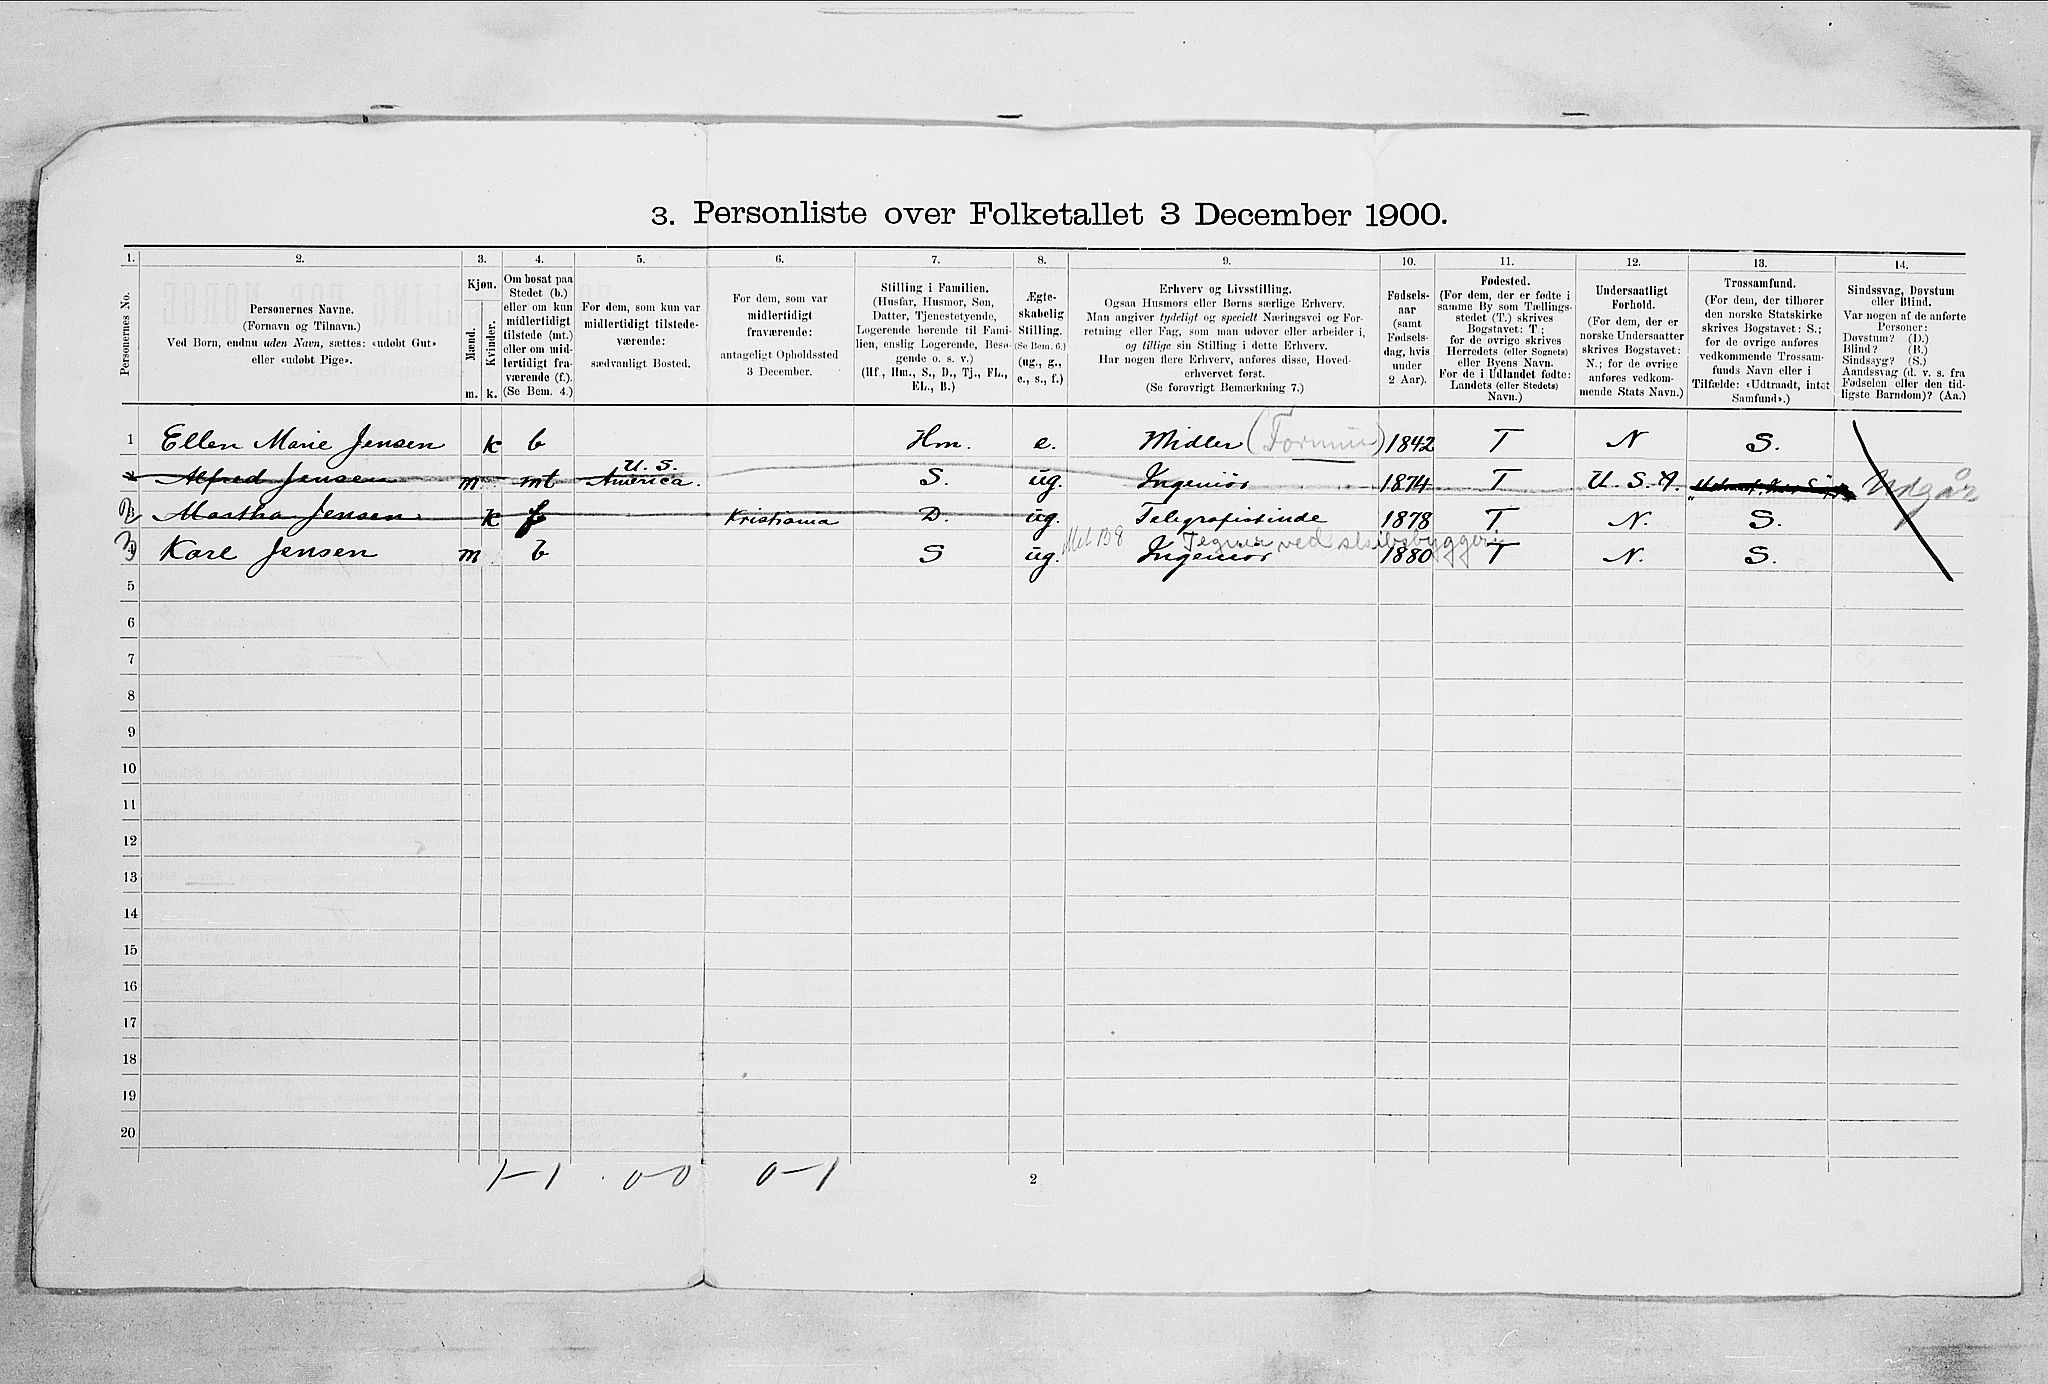 3. Personliste over Folketallet 3 December 1900.
1. 2. 3. 4. 5. 6. 7. 8. 9. 10. 11. 12. 13. 14.
Personernes No.
Personernes Navne.
(Fornavn og Tilnavn.)
Ved Børn, endnu uden Navn, sættes: «udøbt Gut»
eller «udøbt Pige».
Kjøn.
Mænd.
Kvinder.
m. k.
Om bosat paa
Stedet (b.)
eller om kun
midlertidigt
tilstede (mt.)
eller om mid-
lertidigt fra-
værende (f.).
(Se Bem. 4.)
For dem, som kun var
midlertidigt tilstede-
værende:
sædvanligt Bosted.
For dem, som var
midlertidigt
fraværende:
antageligt Opholdssted
3 December.
Stilling i Familien.
(Husfar, Husmor, Søn,
Datter, Tjenestetyende,
Logerende hørende til Fami-
lien, enslig Logerende, Besø-
gende o. s. v.)
(Hf., Hm., S., D., Tj., FL.,
EL., B.)
Ægte-
skabelig
Stilling.
(Se Bem. 6.)
(ug., g.,
e., s., f.)
Erhverv og Livsstilling.
Ogsaa Husmors eller Børns særlige Erhverv.
Man angiver tydeligt og specielt Næringsvei og For-
retning eller Fag, som man udøver eller arbeider i,
og tillige sin Stilling i dette Erhverv.
Har nogen flere Erhverv, anføres disse, Hoved-
erhvervet først.
(Se forøvrigt Bemærkning 7.)
Fødsels-
aar
(samt
Fødsels-
dag, hvis
under
2 Aar).
Fødested.
(For dem, der er fødte i
samme By som Tællings-
stedet (T.) skrives
Bogstavet: T;
for de øvrige skrives
Herredets (eller Sognets)
eller Byens Navn.
For de i Udlandet fødte:
Landets (eller Stedets)
Navn.)
Undersaatligt
Forhold.
(For dem, der er
norske Undersaatter
skrives Bogstavet:
N.; for de øvrige
anføres vedkom-
mende Stats Navn.)
Trossamfund.
(For dem, der tilhører
den norske Statskirke
skrives Bogstavet: S.;
for de øvrige anføres
vedkommende Trossam-
funds Navn eller i
Tilfælde: «Udtraadt, intet
Samfund».)
Sindssvag, Døvstum
eller Blind.
Var nogen af de anførte
Personer:
Døvstum? (D.)
Blind? (B.)
Sindssyg? (S.)
Aandssvag (d. v. s. fra
Fødselen eller den tid-
ligste Barndom)? (Aa.)
1 Ellen Marie Jensen k b Hm. e. Midler 1842 T N S.
Alfred Jensen m mt U. S. America. S. ug. Ingeniør 1874 T U. S. A. Udgår
2 Martha Jensen k f Kristiania D. ug. Telegrafistinde 1878 T N. S.
Tegner ved skibsbyggeri
3 Karl Jensen m b S ug. Ingeniør 1880 T N. S.
5
6
7
8
9
10
11
12
13
14
15
16
17
18
19
20
1-1 0-0 0-1
2